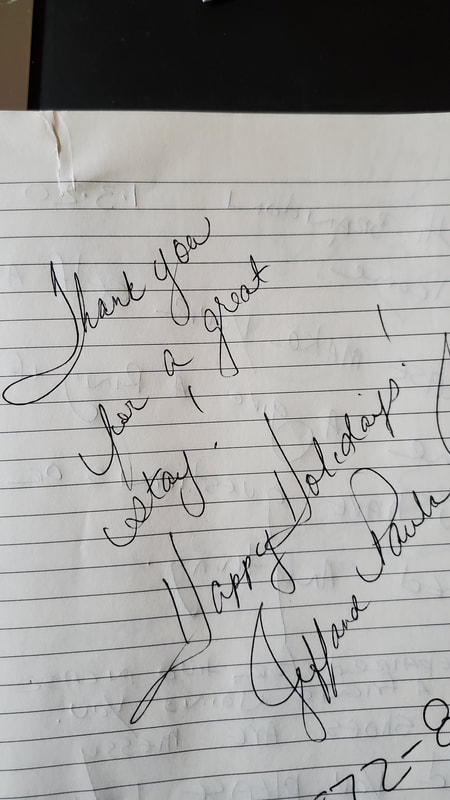 Thank you
for a great
stay!
Happy Holidays!
Jeff and Paula
72-8